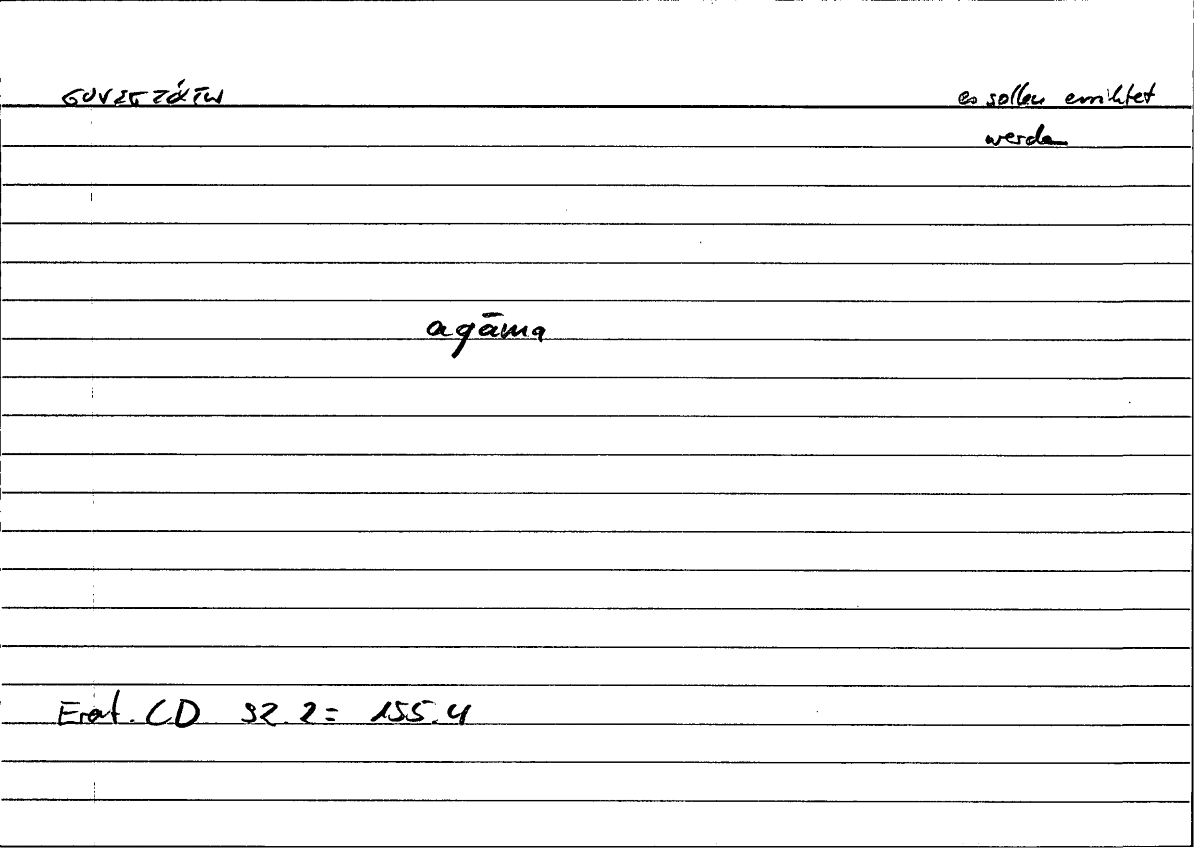 συνεστάτω es sollen errichtet
werden
aqāma
Erat. CD 92.2 = 155.4